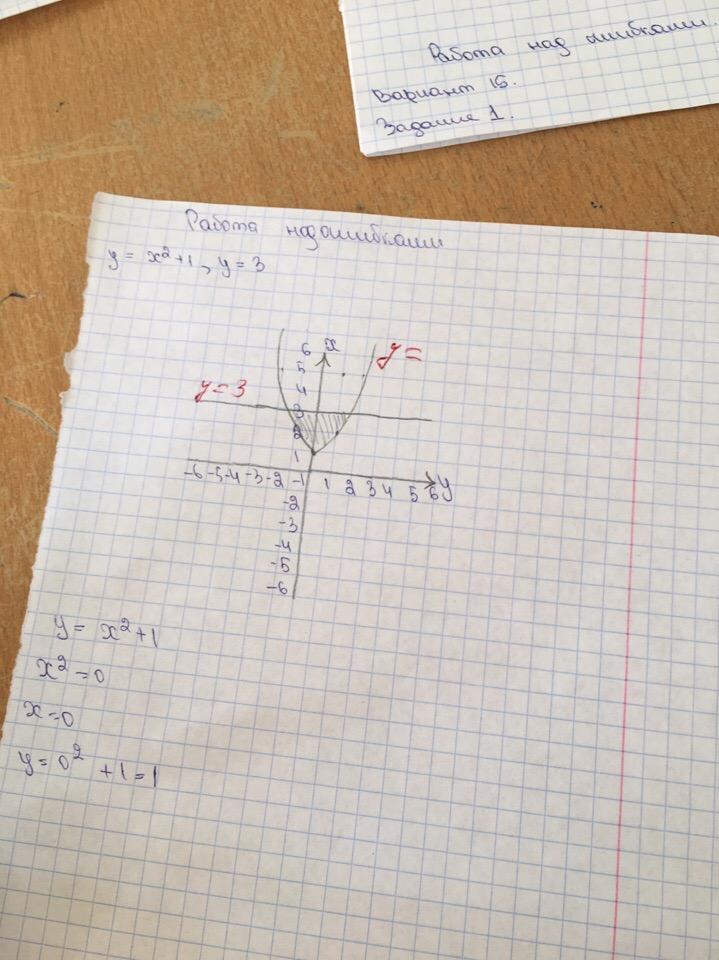 Работа над ошибками.
Вариант 15.
Задание 1.
Работа над ошибками
y = x²+1, y = 3
6 x
y =
5
4
y = 3
3
2
1
-6 -5 -4 -3 -2 -1 1 2 3 4 5 6 y
-2
-3
-4
-5
-6
y = x²+1
x² = 0
x = 0
y = 0² + 1 = 1